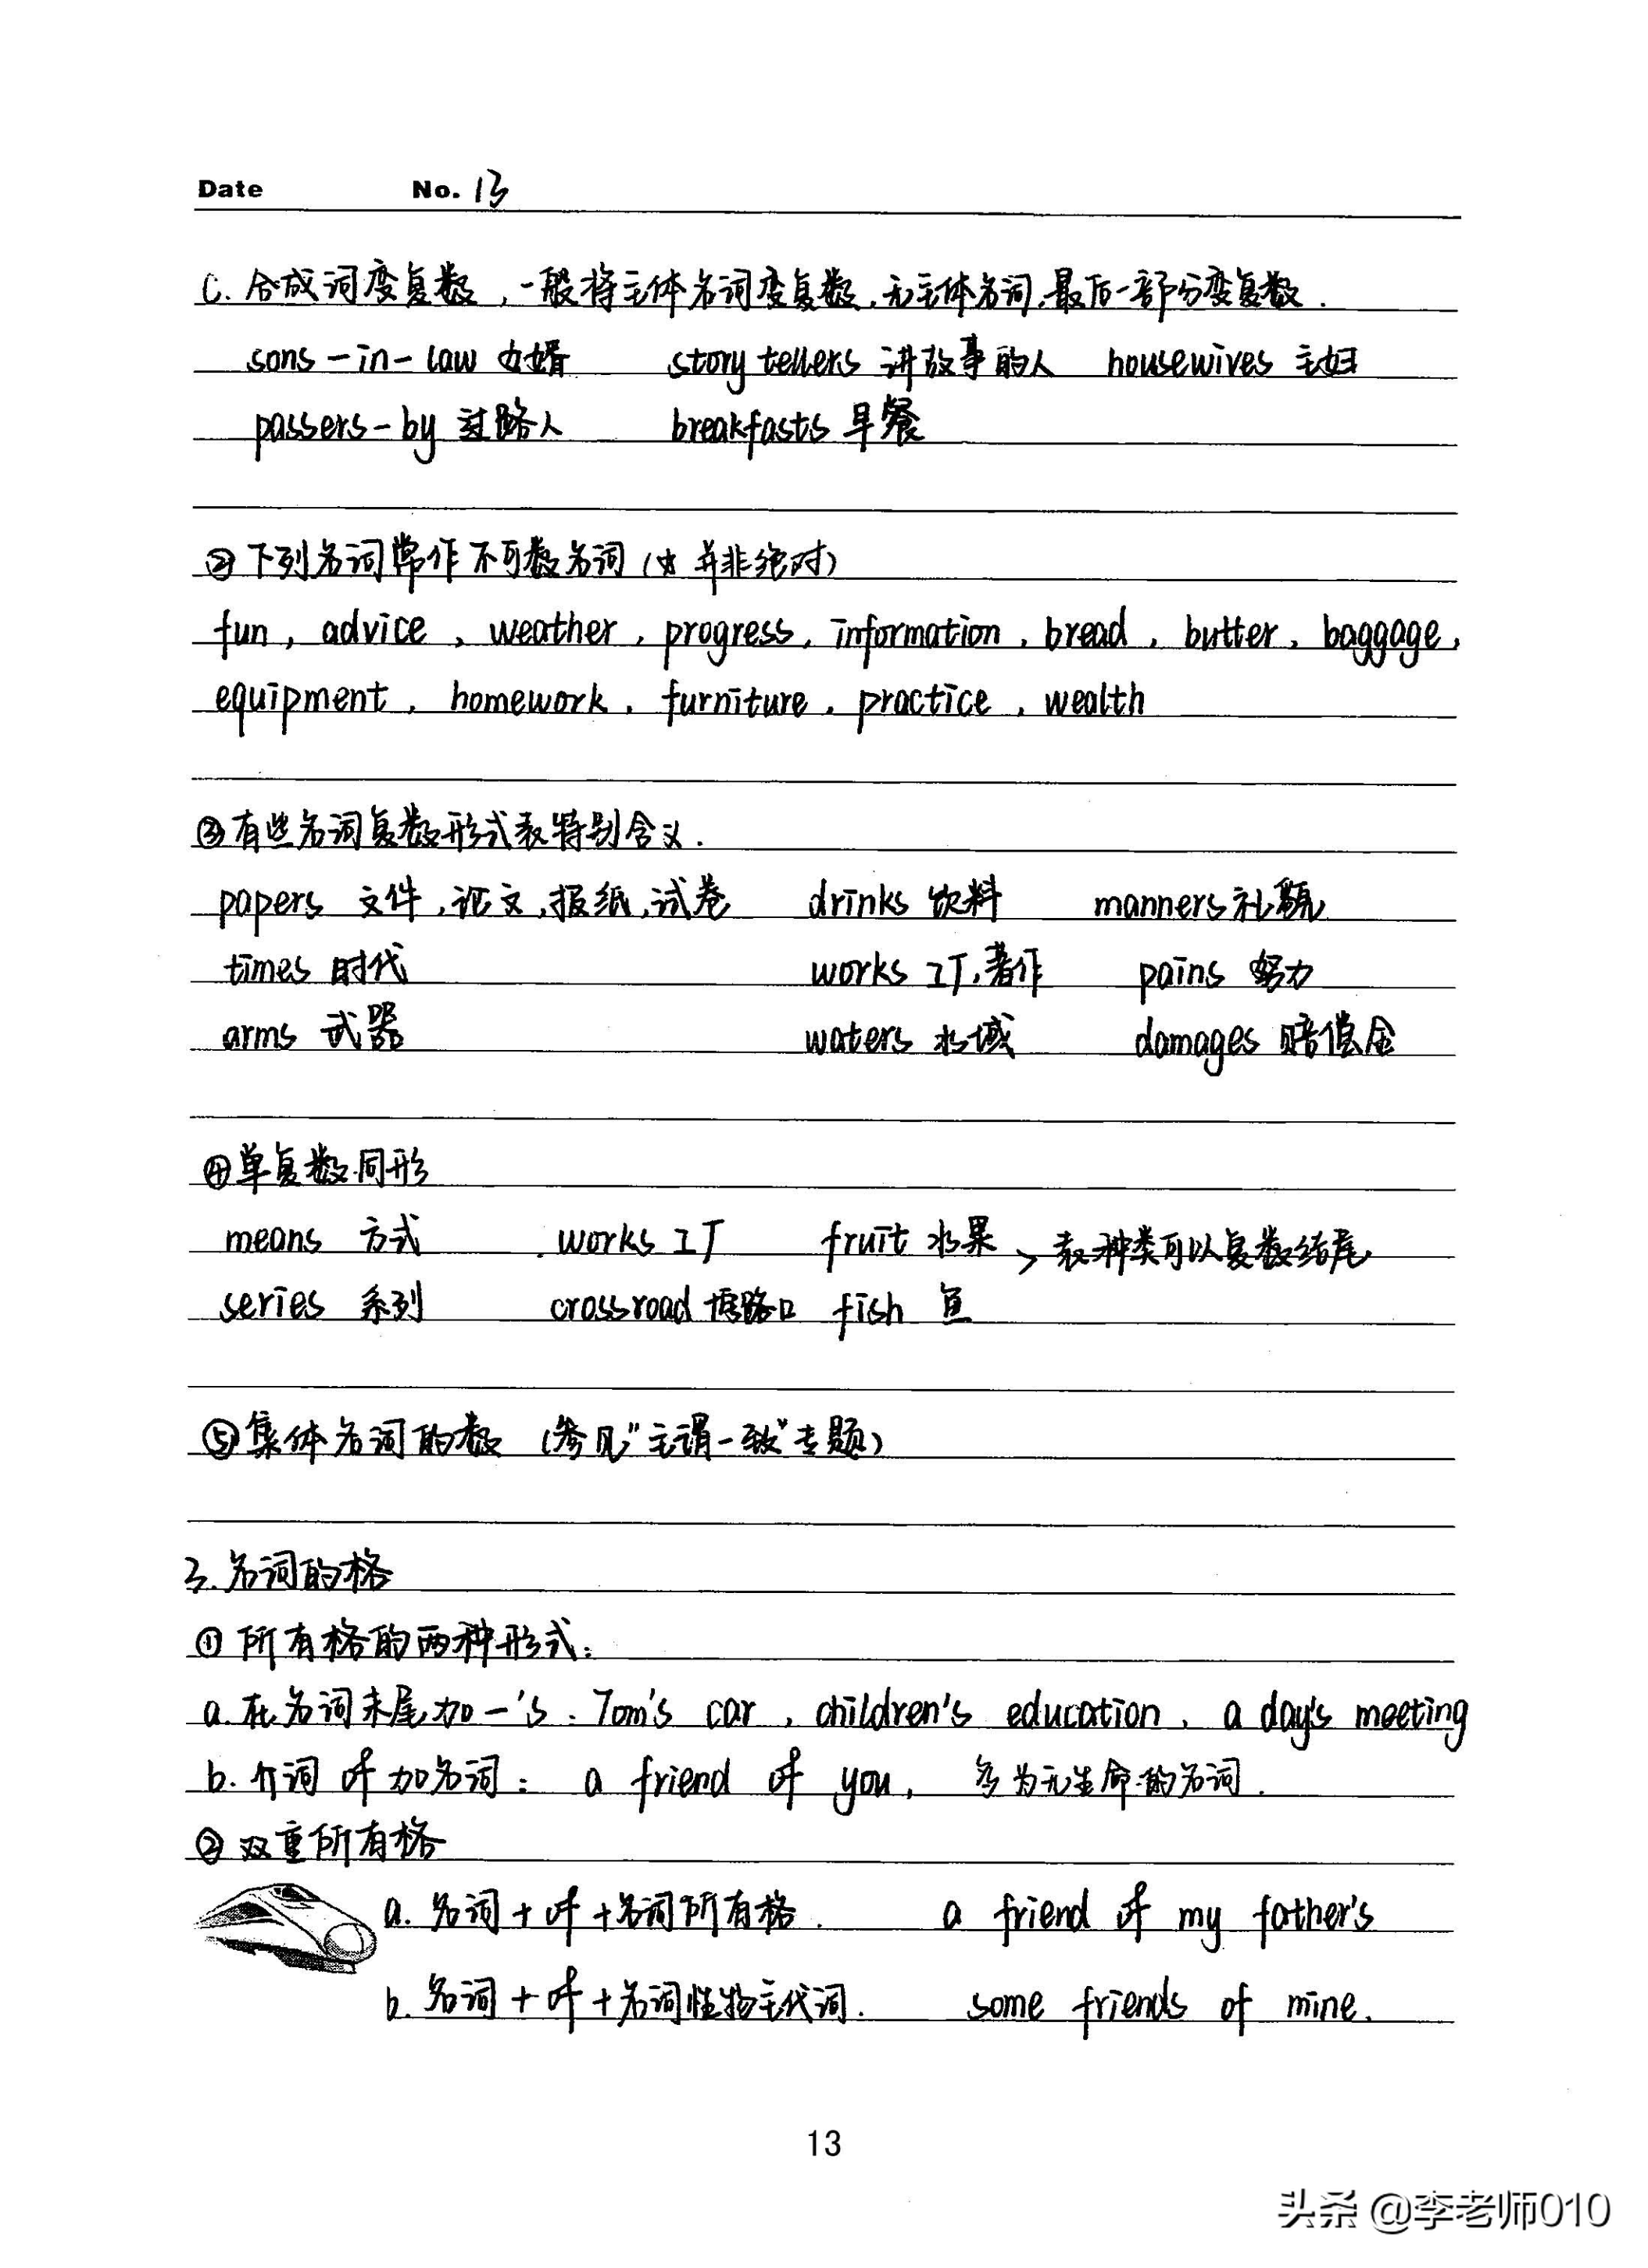 Date No. 13
c. 合成词变复数,一般将主体名词变复数,无主体名词,最后一部分变复数.
sons-in-law 女婿 story tellers 讲故事的人 housewives 主妇
passers-by 过路人 breakfasts 早餐
② 下列名词常作不可数名词 ( 并非绝对)
fun, advice, weather, progress, information, bread, butter, baggage,
equipment, homework, furniture, practice, wealth
③有些名词复数形式表特别含义.
papers 文件,论文,报纸,试卷 drinks 饮料 manners 礼貌
times 时代 works 工厂,著作 pains 努力
arms 武器 waters 水域 damages 赔偿金
④单复数同形
means 方式 works 工厂 fruit 水果 > 表种类可以复数结尾
series 系列 crossroad 十字路口 fish 鱼
⑤集体名词的数 (参见"主谓一致"专题)
3.名词的格
① 所有格的两种形式:
a.在名词末尾加-'s: Tom's car, children's education, a day's meeting
b.介词 of 加名词: a friend of you, 多为无生命的名词.
② 双重所有格
a. 名词+of+名词所有格. a friend of my father's
b. 名词+of+名词性物主代词. some friends of mine.
13
头条 @李老师010